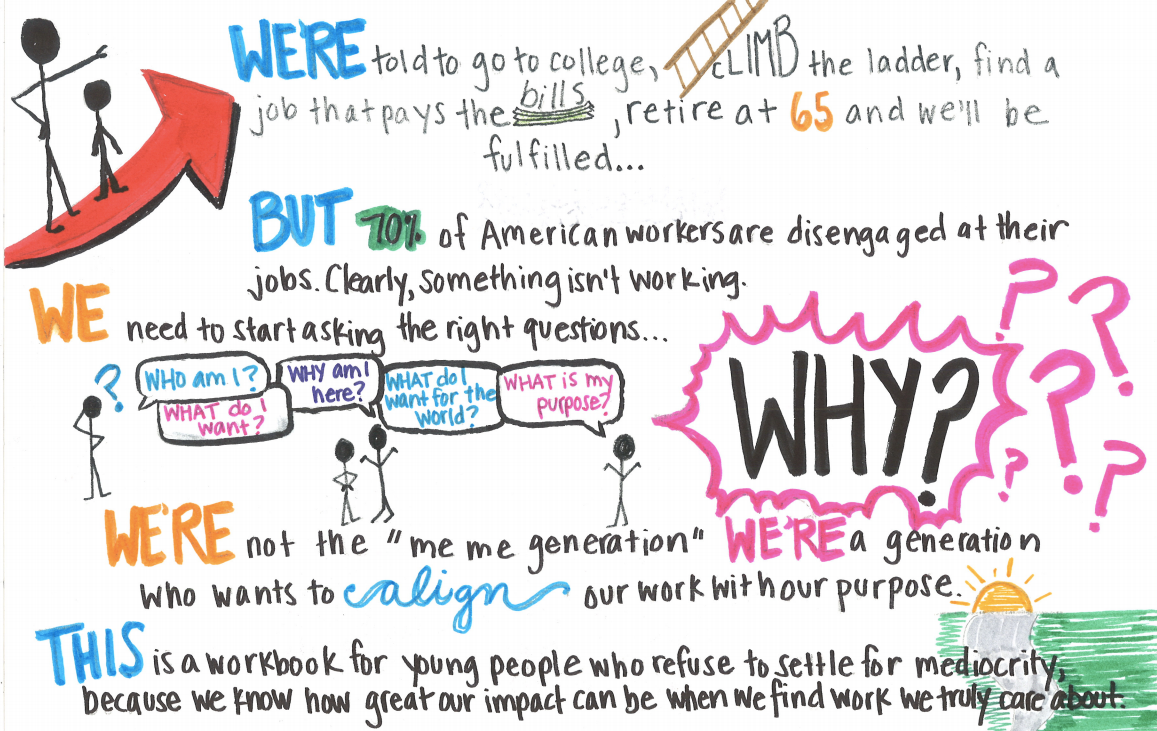 WE'RE told to go to college, CLIMB the ladder, find a
job that pays the bills, retire at 65 and we'll be
fulfilled...
BUT 70% of American workers are disengaged at their
jobs. Clearly, something isn't working.
WE need to start asking the right questions...
?
WHO am I?
WHAT do I
want?
WHY am I
here?
WHAT do I
want for the
world?
WHAT is my
purpose?
WHY?
? ? ? ? ?
WE'RE not the "me me generation" WE'RE a generation
who wants to align our work with our purpose.
THIS is a workbook for young people who refuse to settle for mediocrity,
because we know how great our impact can be when we find work we truly care about.